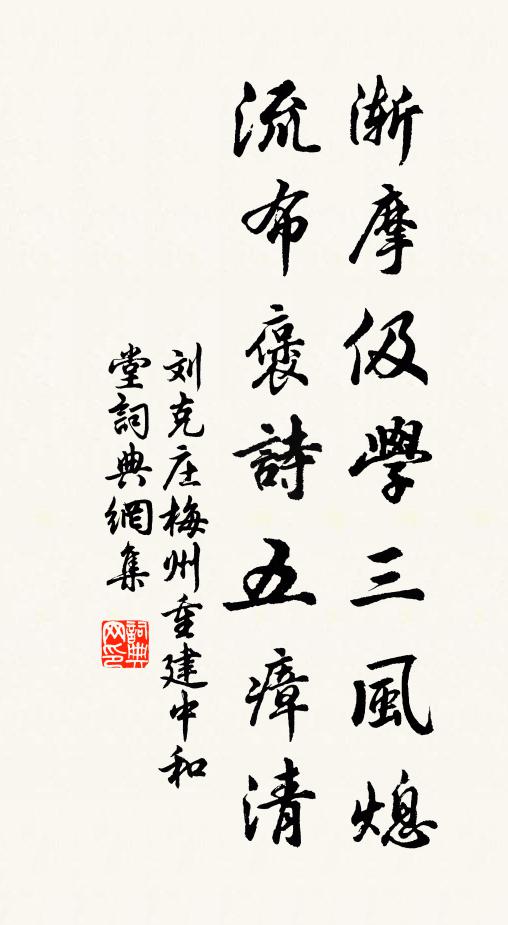 漸摩伋學三風熄
流布褒詩五瘴清
刘克庄梅州重建中和
堂詞典網集
詞典网印